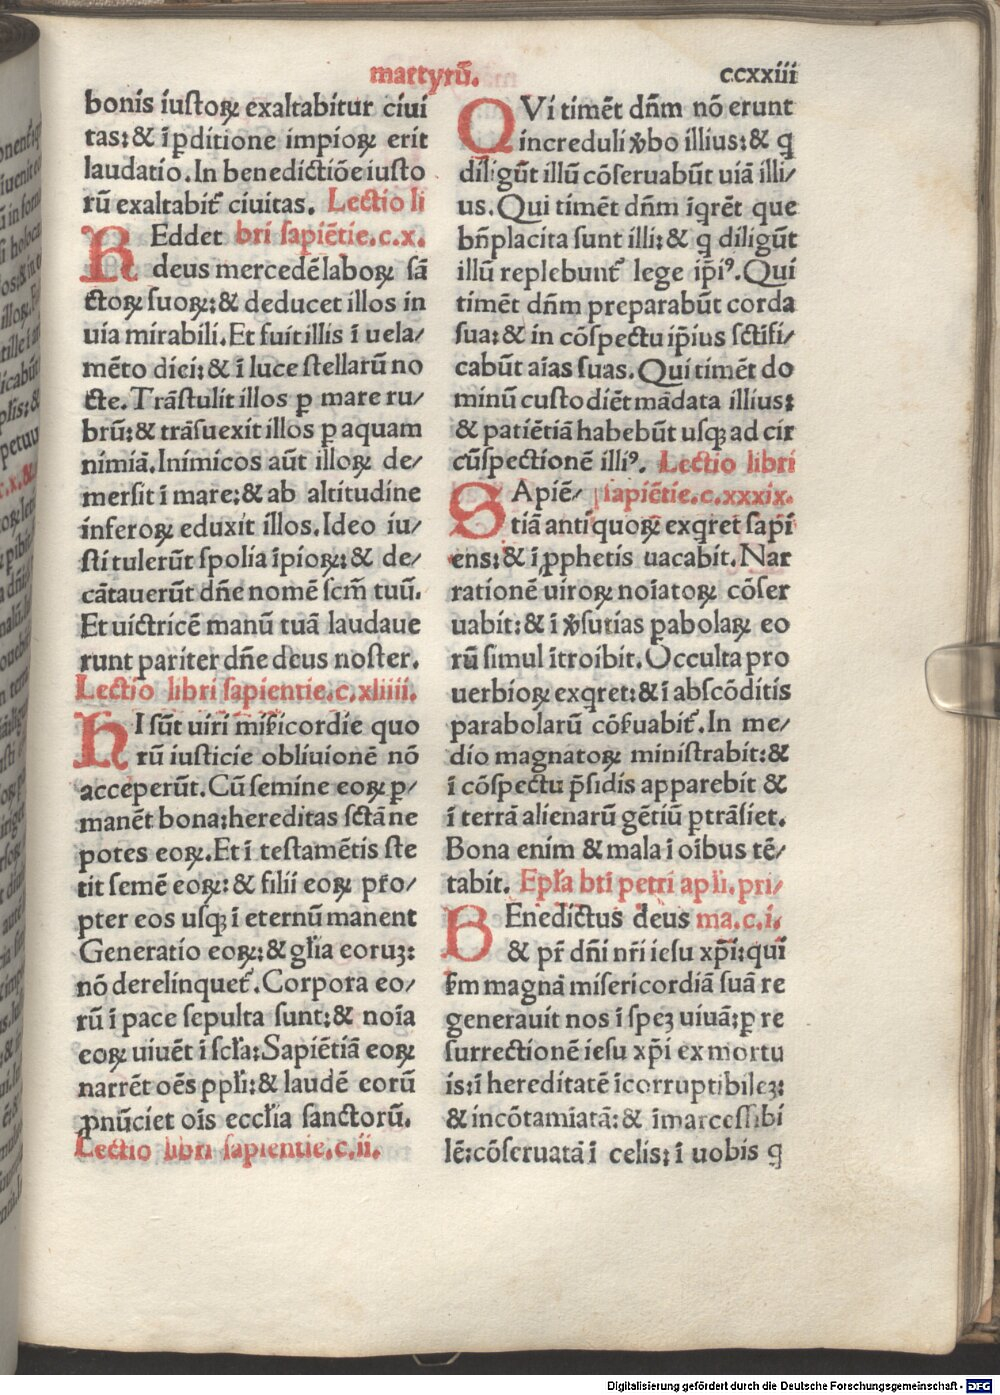 martyrū.
ccxxiii
bonis iustoꝝ exaltabitur ciui
tas:& īꝑditione impioꝝ erit
laudatio.In benedictiōe iusto
rū exaltabit᷑ ciuitas. Lectio li
REddet bri sapiētie.c.x.
deus mercedē laboꝝ sā
ctoꝝ suoꝝ:& deducet illos in
uia mirabili.Et fuit illis ī uela/
mēto diei:& ī luce stellarū no
cte.Trāstulit illos ꝑ mare ru/
brū:& trāsuexit illos ꝑ aquam
nimiā.Inimicos aūt illoꝝ de/
mersit ī mare:& ab altitudine
inferoꝝ eduxit illos.Ideo iu/
sti tulerūt spolia īpioꝝ:& de/
cātauerūt dn̄e nomē scm̄ tuū.
Et uictricē manū tuā laudaue
runt pariter dn̄e deus noster.
Lectio libri sapientie.c.xliiii.
HI sūt uiri mīꝭicordie quo
rū iusticie obliuionē nō
acceperūt.Cū semine eoꝝ ꝑ/
manēt bona:hereditas sctā ne
potes eoꝝ.Et ī testamētis ste
tit semē eoꝝ:& filii eoꝝ pro/
pter eos usqꝫ ī eternū manent
Generatio eoꝝ:& gl̄ia eoruꝫ:
nō derelinquet᷑.Corpora eo/
rū ī pace sepulta sunt:& noīa
eoꝝ uiuēt ī scl̄a:Sapiētiā eoꝝ
narrēt oēs ppl̄i:& laudē eorū
ꝓnūciet oīs eccl̄ia sanctorū.
Lectio libri sapientie.c.ii.
QVi timēt dn̄m nō erunt
increduli v̾bo illius:& q̄
diligūt illū cōseruabūt uiā illi/
us.Qui timēt dn̄m īqrēt que
bn̄placita sunt illi:& q̄ diligūt
illū replebunt᷑ lege ip̄iꝰ.Qui
timēt dn̄m preparabūt corda
sua:& in cōspectu ip̄ius sctīfi/
cabūt aīas suas.Qui timēt do
minū custodiēt mādata illius:
& patiētiā habebūt usqꝫ ad cir
cūspectionē illiꝰ. Lectio libri
SApiē/ sapiētie.c.xxxix.
tiā antiquoꝝ exqret sapi
ens:& ī ꝓphetis uacabit.Nar
rationē uiroꝝ noīatoꝝ cōser
uabit:& ī v̾sutias ꝑabolaꝝ eo
rū simul ītroibit.Occulta pro
uerbioꝝ exqret:& ī abscōditis
parabolarū cōꝭuabit᷑.In me/
dio magnatoꝝ ministrabit:&
ī cōspectu p̄sidis apparebit &
ī terrā alienarū gētiū ꝑtrāsiet.
Bona enim & mala ī oībus tē/
tabit. Epl̄a bti petri apl̄i.pri/
BEnedictus deus ma.c.i.
& pr̄ dn̄i nr̄i iesu xp̄i:qui
ꝭm magnā misericordiā suā re
generauit nos ī speꝫ uiuā:ꝑ re
surrectionē iesu xp̄i ex mortu
is:ī hereditatē īcorruptibileꝫ:
& incōtamiatā:& īmarcessibi
lē:cōseruatā ī celis:ī uobis q̄
Digitalisierung gefördert durch die Deutsche Forschungsgemeinschaft - DFG